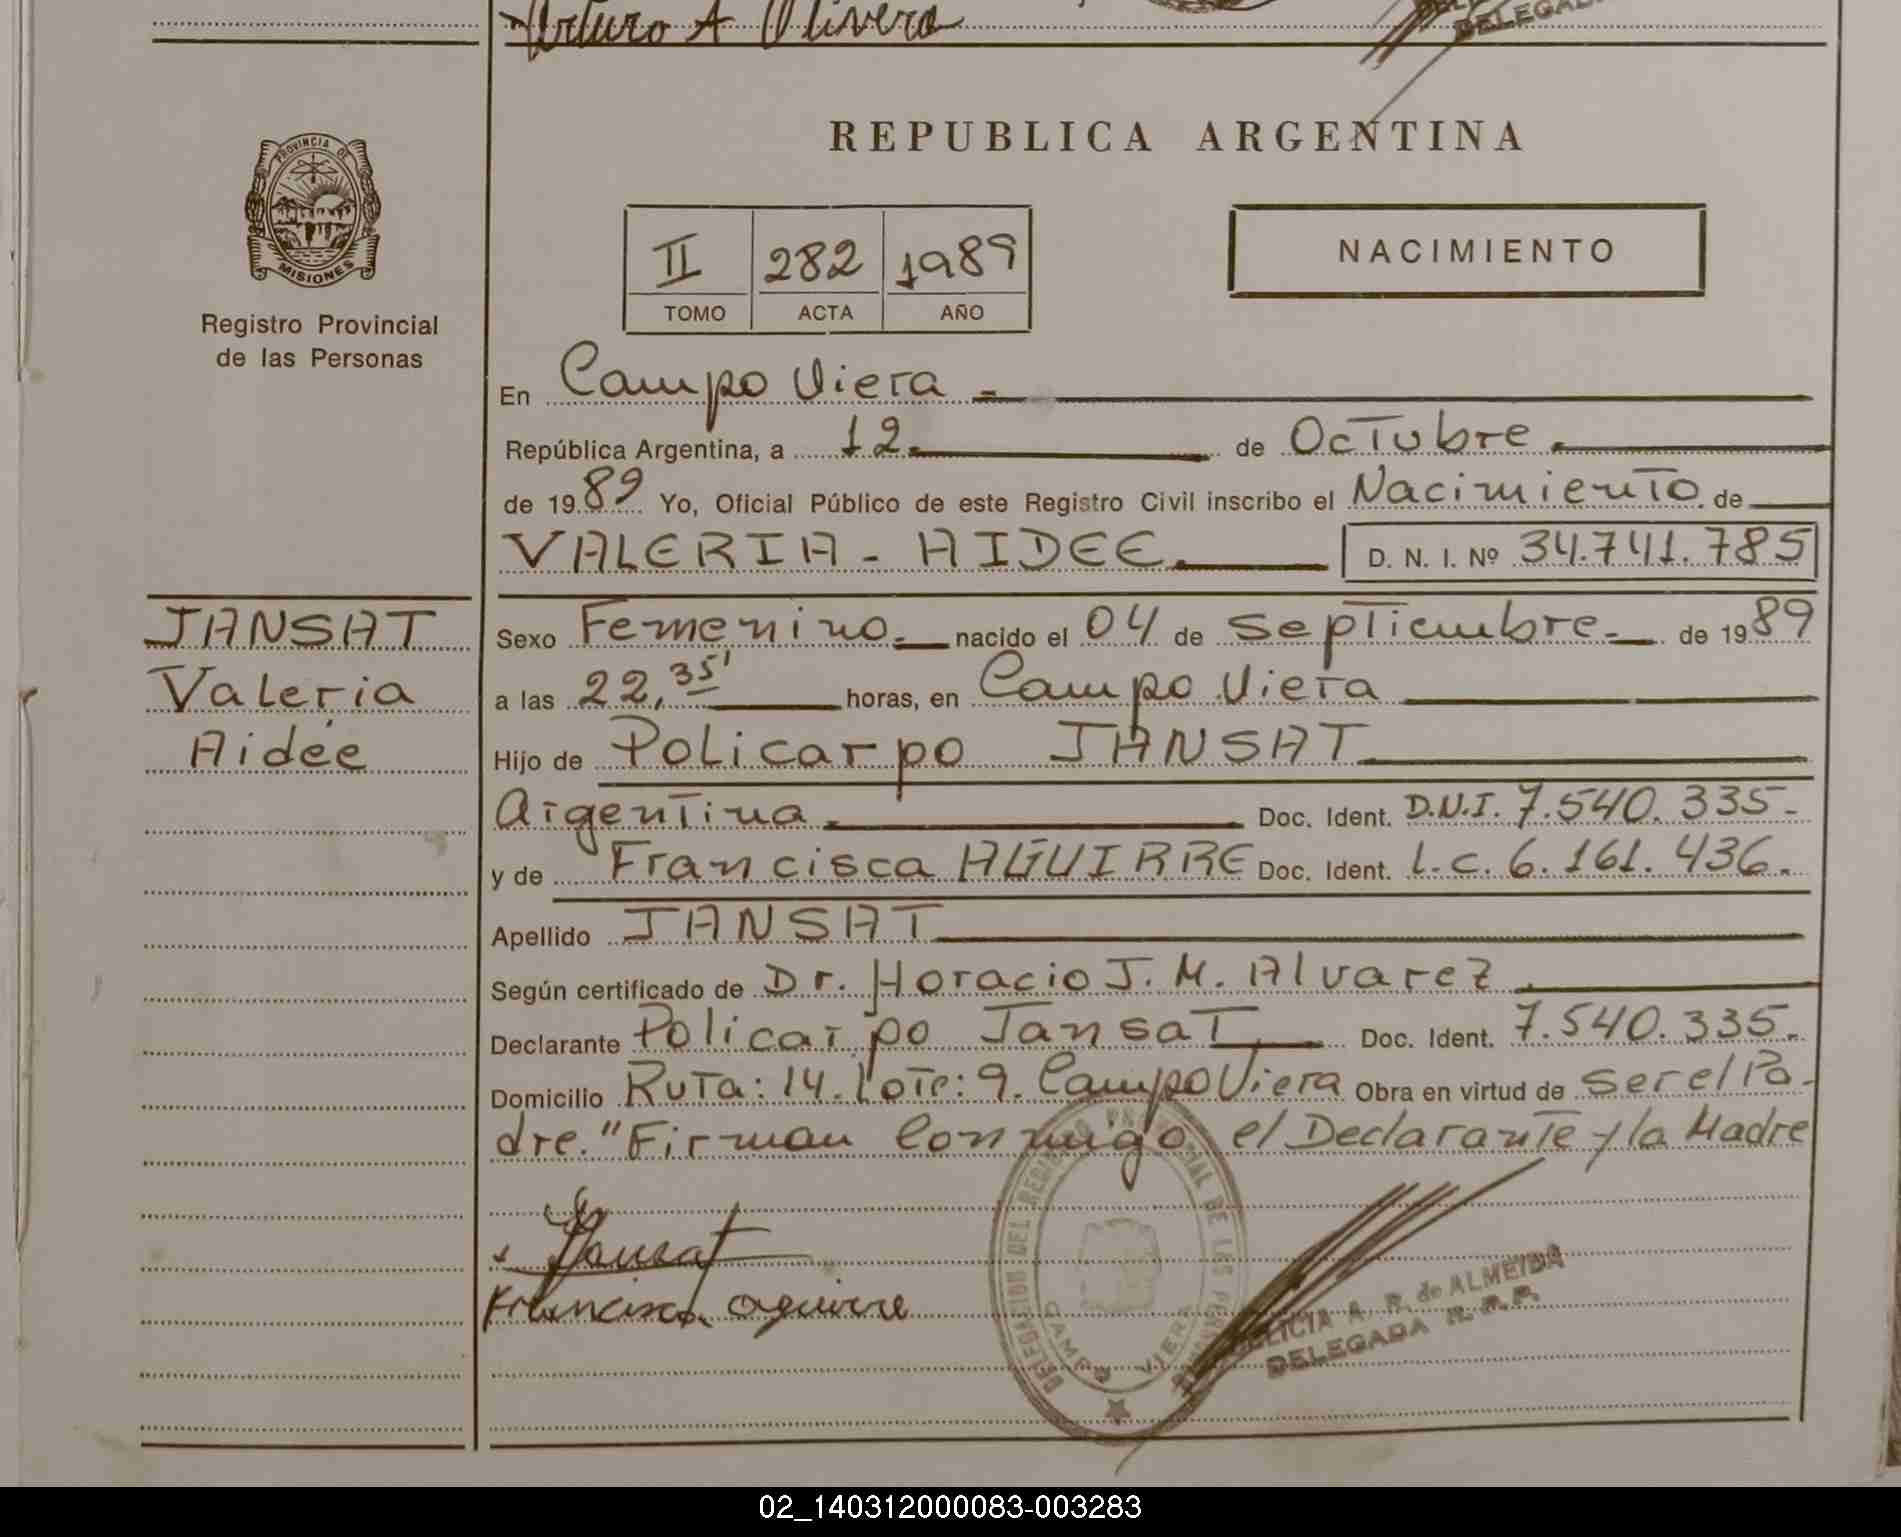 Arturo A Olivera
PROVINCIA DE
MISIONES
Registro Provincial
de las Personas
REPUBLICA ARGENTINA
II 282 1989
TOMO ACTA AÑO
NACIMIENTO
En Campo Viera -
República Argentina, a 12. de Octubre.
de 1989 Yo, Oficial Público de este Registro Civil inscribo el Nacimiento de
VALERIA - AIDEE. D. N. I. Nº 34.741.785
JANSAT
Valeria
Aidée
Sexo Femenino. nacido el 04 de septiembre. de 1989
a las 22,35' horas, en Campo Viera
Hijo de Policarpo JANSAT
Argentina. Doc. Ident. D.N.I. 7.540.335-
y de Francisca AGUIRRE Doc. Ident. L.C. 6.161.436.
Apellido JANSAT
Según certificado de Dr. Horacio J. M. Alvarez.
Declarante Policarpo Jansat Doc. Ident. 7.540.335.
Domicilio Ruta: 14. Lote: 9. Campo Viera Obra en virtud de ser el Pa-
dre. "Firman conmigo el Declarante y la Madre
Jansat
Francisca aguirre
DELEGACION DEL REGISTRO PROVINCIAL DE LAS PERSONAS
CAMPO VIERA
A. R. de ALMEIDA
DELEGADA R.P.P.
02_140312000083-003283